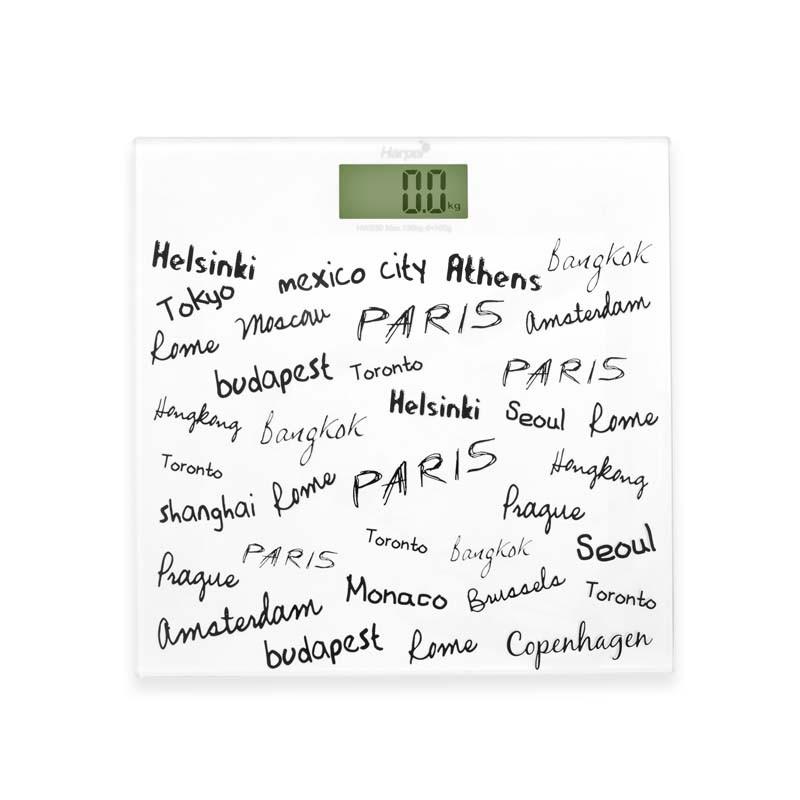 Harper
0.0 kg
Helsinki mexico city Athens Bangkok
Tokyo Moscow PARIS Amsterdam
Rome
budapest Toronto PARIS
Hongkong Bangkok Helsinki Seoul Rome
Toronto PARIS Hongkong
shanghai Rome Prague
PARIS Toronto Bangkok Seoul
Prague Monaco Brussels Toronto
Amsterdam
budapest Rome Copenhagen